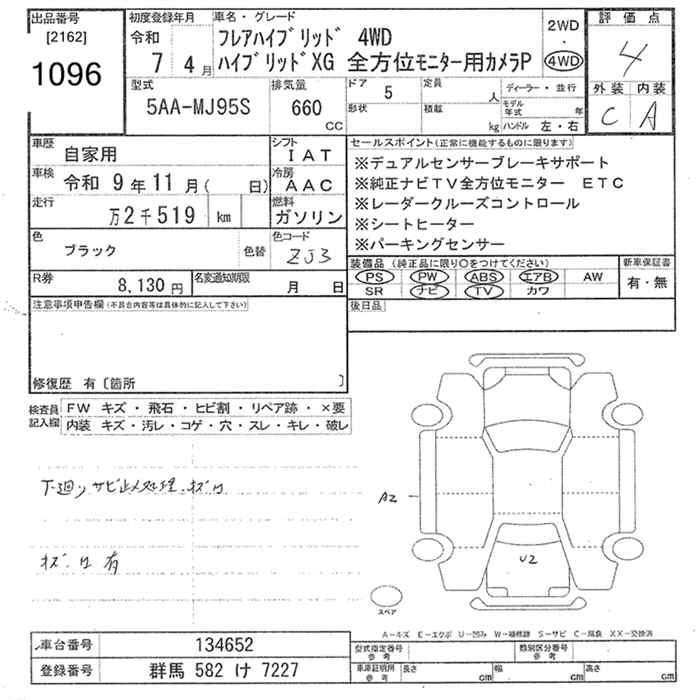 出品番号
[2162]
1096
初度登録年月
令和
7 4月
車名・グレード
フレアハイブリッド 4WD
ハイブリッドXG 全方位モニター用カメラP
2WD
・
4WD
評価点
4
外装 内装
C A
型式
5AA-MJ95S
排気量
660
CC
ドア 5
形状
定員 人
積載 kg
ディーラー・並行
モデル年式 年
ハンドル 左・右
車歴
自家用
シフト
IAT
車検
令和 9年11月( 日)
冷房
AAC
走行
万2千519 km
燃料
ガソリン
色
ブラック
色替
色コード
ZJ3
R券
8,130円
名変通知期限
月 日
セールスポイント(正常に機能するものに限ります)
※デュアルセンサーブレーキサポート
※純正ナビTV全方位モニター ETC
※レーダークルーズコントロール
※シートヒーター
※パーキングセンサー
装備品(純正品に限り○をつけてください)
PS PW ABS エアB AW
SR ナビ TV カワ
新車保証書
有・無
後日品
注意事項申告欄(不具合内容等は具体的に記入して下さい)
修復歴 有〔箇所 〕
検査員
記入欄
FW キズ・飛石・ヒビ割・リペア跡・×要
内装 キズ・汚レ・コゲ・穴・スレ・キレ・破レ
下廻りサビ止メ処理
有
A2
U2
スペア
A-キズ E-エクボ U-凹み W-補修跡 S-サビ C-腐食 XX-交換済
車台番号
134652
登録番号
群馬 582 け 7227
型式指定番号
参考
類別区分番号
参考
車庫証明用
参考
長さ cm
幅 cm
高さ cm